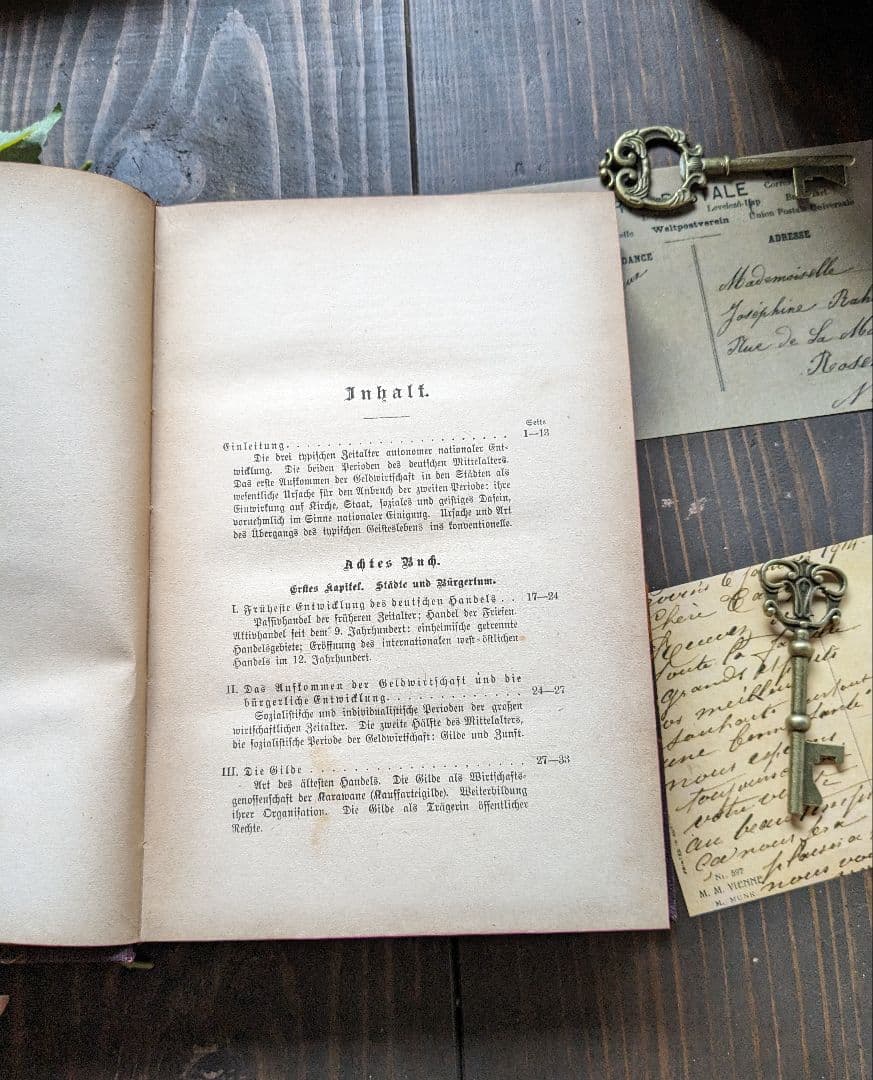 Inhalt.
Seite
Einleitung. . . . . . . . . . . . . . . . . . . . 1—13
Die drei typischen Zeitalter autonomer nationaler Ent-
wicklung. Die beiden Perioden des deutschen Mittelalters.
Das erste Aufkommen der Geldwirtschaft in den Städten als
wesentliche Ursache für den Anbruch der zweiten Periode: ihre
Einwirkung auf Kirche, Staat, soziales und geistiges Dasein,
vornehmlich im Sinne nationaler Einigung. Ursache und Art
des Übergangs des typischen Geisteslebens ins konventionelle.
Achtes Buch.
Erstes Kapitel. Städte und Bürgertum.
I. Früheste Entwicklung des deutschen Handels . . 17—24
Passivhandel der früheren Zeitalter; Handel der Friesen.
Aktivhandel seit dem 9. Jahrhundert: einheimische getrennte
Handelsgebiete; Eröffnung des internationalen west-östlichen
Handels im 12. Jahrhundert.
II. Das Aufkommen der Geldwirtschaft und die
bürgerliche Entwicklung. . . . . . . . . . . . . 24—27
Sozialistische und individualistische Perioden der großen
wirtschaftlichen Zeitalter. Die zweite Hälfte des Mittelalters,
die sozialistische Periode der Geldwirtschaft: Gilde und Zunft.
III. Die Gilde . . . . . . . . . . . . . . . . . . . 27—33
Art des ältesten Handels. Die Gilde als Wirtschafts-
genossenschaft der Karawane (Kauffarteigilde). Weiterbildung
ihrer Organisation. Die Gilde als Trägerin öffentlicher
Rechte.
Levelező-Lap
Weltpostverein Union Postale Universelle
DANCE ADRESSE
Mademoiselle
Joséphine
Rue de La
1914
Chère
toute la
grands
meilleurs
souhaits surtout
une bonne
nous
toujours
votre
au beau
nous
Nr. 597
M. M. VIENNE
M. MUNK